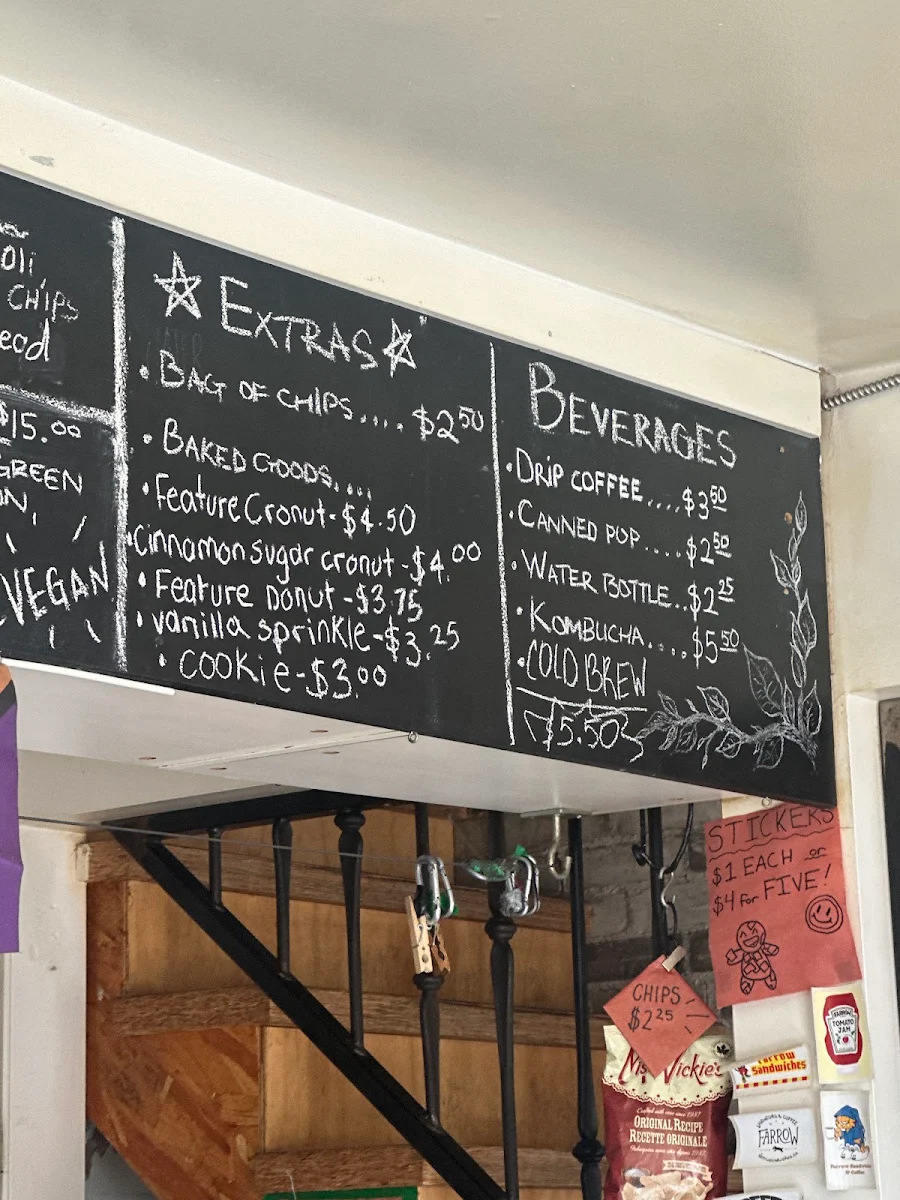 oli
CHIPS
ead
$15.00
GREEN
VEGAN
EXTRAS
• BAG OF CHIPS.... $2 50
• BAKED GOODS....
• Feature Cronut - $4.50
• cinnamon sugar cronut - $4.00
• Feature Donut - $3.75
• vanilla sprinkle - $3.25
• cookie - $3.00
BEVERAGES
• DRIP COFFEE.... $3 50
• CANNED POP.... $2 50
• WATER BOTTLE.. $2 25
• KOMBUCHA.... $5 50
• COLD BREW
$5.50
STICKERS
$1 EACH or
$4 for FIVE!
CHIPS
$2.25
Ms Vickie's
Crafted with care since 1987
ORIGINAL RECIPE
RECETTE ORIGINALE
FARROW
TOMATO
JAM
Farrow
Sandwiches
FARROW
Farrow Sandwiches
& Coffee